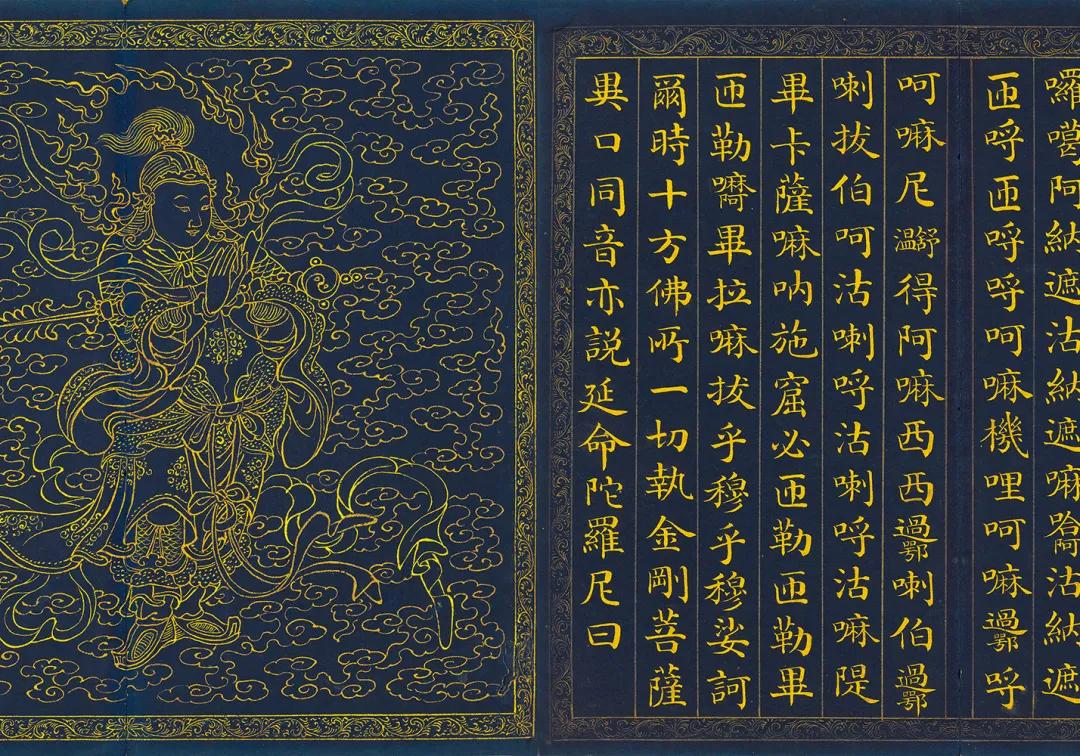 囉噶阿納遮沽納遮嘛沽納遮
匝呼匝呼呼呵嘛機哩呵嘛過鄂呼
呵嘛尼舒温得阿嘛西西過鄂喇伯過鄂
喇拔伯呵沽喇呼沽喇呼沽嘛隄
畢卡薩嘛吶施窟必匝勒匝勒畢
匝勒畢拉嘛拔乎穆乎穆娑訶
爾時十方佛所一切執金剛菩薩
異口同音亦説延命陀羅尼曰